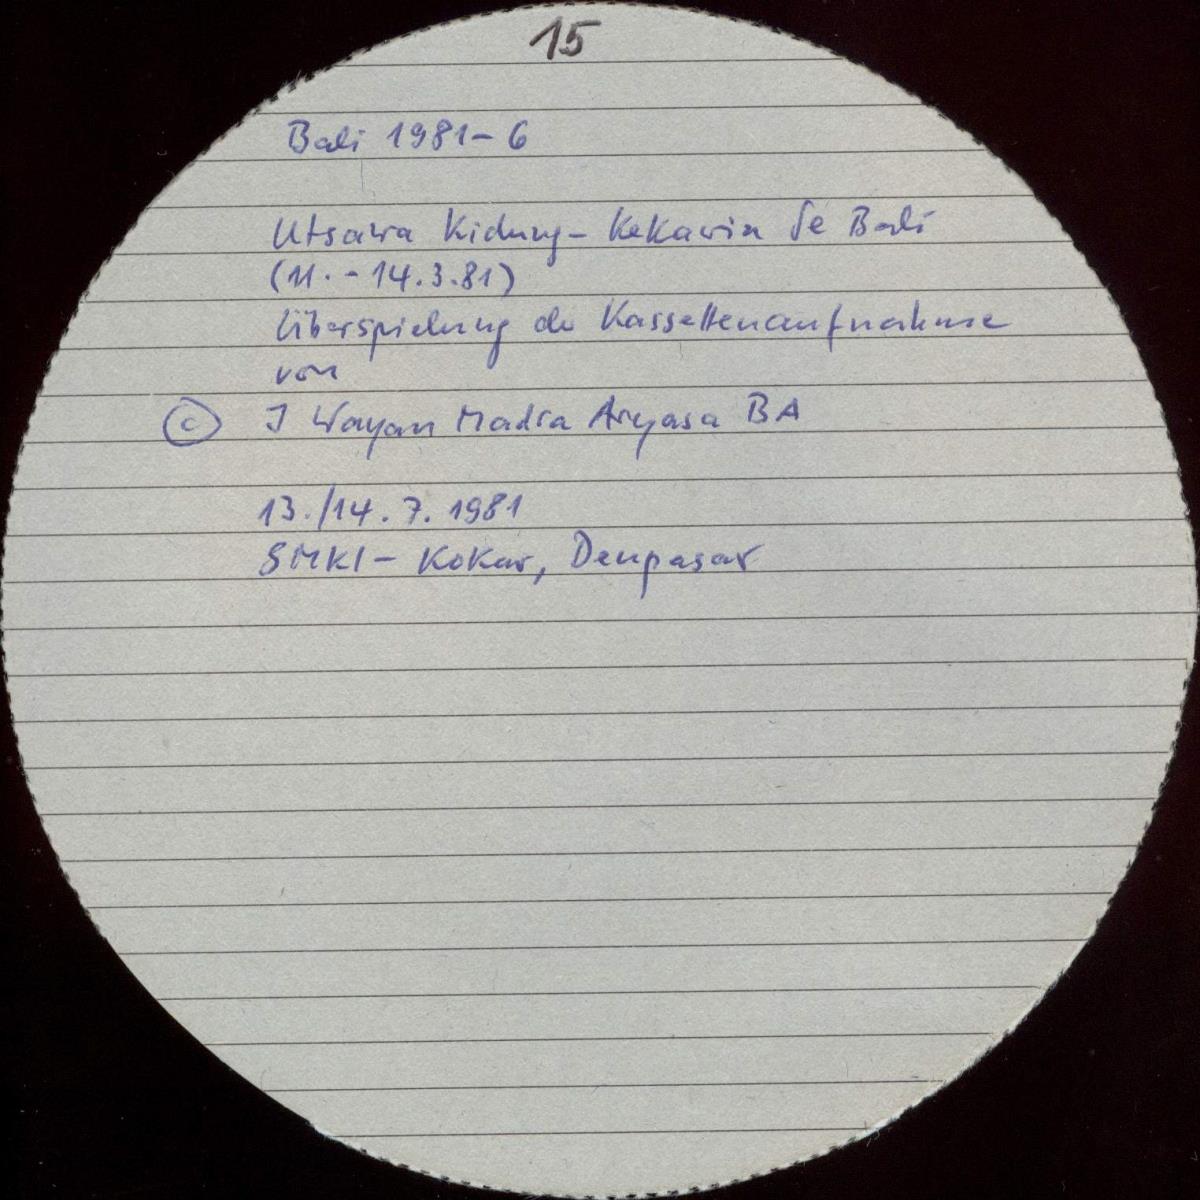 15
Bali 1981-6
Utsawa Kidung - Kekawin Se Bali
(11. - 14.3.81)
Überspielung der Kassettenaufnahme
von
© I Wayan Madra Aryasa BA
13./14. 7. 1981
SMKI - Kokar, Denpasar